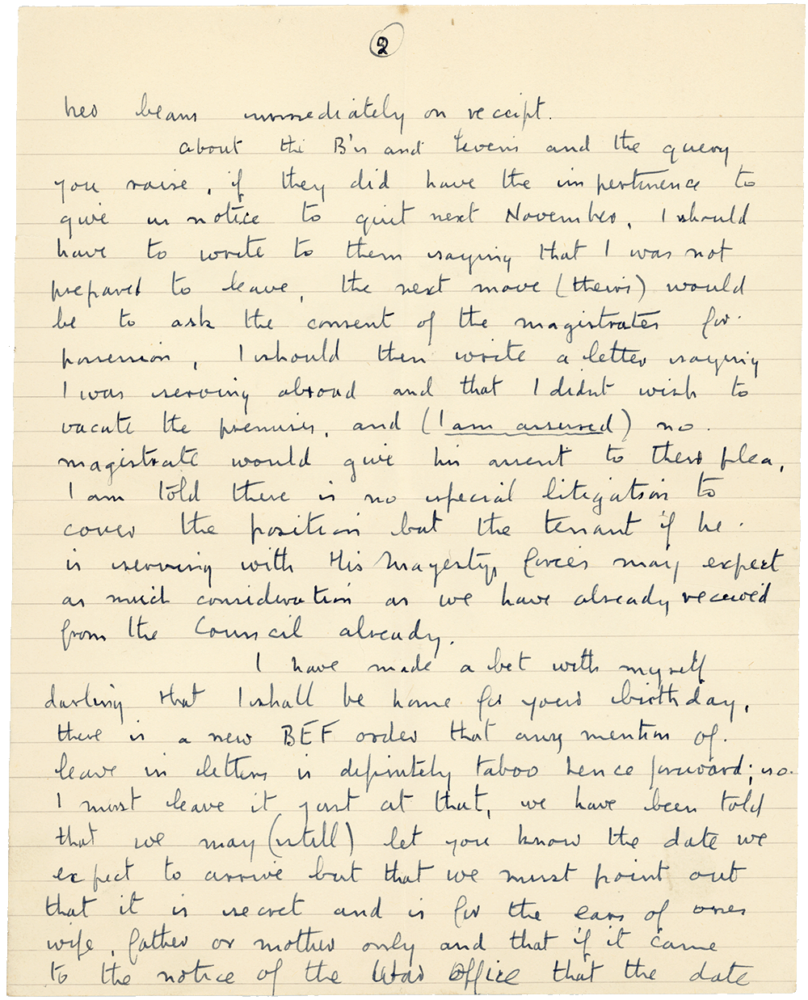 2
beans immediately on receipt.
about the B's and and the query
you raise, if they did have the impertinence to
give us notice to quit next November, I should
have to write to them saying that I was not
prepared to leave, the next move (theirs) would
be to ask the consent of the magistrates for
possession, I should then write a letter saying
I was serving abroad and that I didnt wish to
vacate the premises, and (I am assured) no
magistrate would give his assent to their plea,
I am told there is no especial litigation to
cover the position but the tenant if he
is serving with His Magestys forces may expect
as much consideration as we have already received
from the Council already.
I have made a bet with myself
darling that I shall be home for your birthday,
there is a new BEF order that any mention of
leave in letters is definitely taboo hence forward; so
I must leave it just at that, we have been told
that we may (still) let you know the date we
expect to arrive but that we must point out
that it is secret and is for the ears of ones
wife, father or mother only and that if it came
to the notice of the War Office that the date